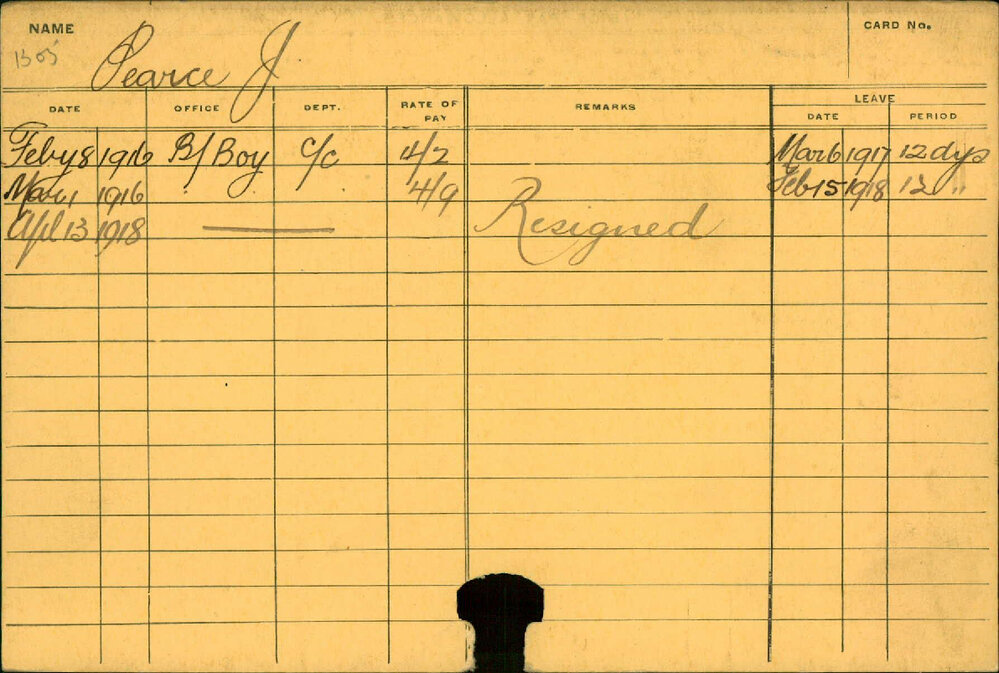 NAME
CARD No.
1305
Pearce J
DATE OFFICE DEPT. RATE OF PAY REMARKS LEAVE
DATE PERIOD
Feby 8 1916 B/ Boy C/C 4/2 Mar 6 1917 12 dys
Mar 1 1916 " 4/9 Feb 15 1918 12 "
Apl 13 1918 Resigned